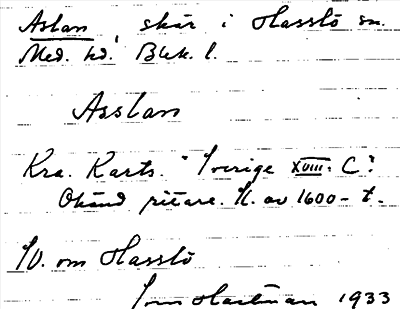 Aslan, skär i Hasslö sn.
Med. hd. Blek. l.
Asslan
Kra. Karts. "Sverige XVIII. C".
Okänd ritare. Sl. av 1600-t.
SV. om Hasslö
Hartman 1933